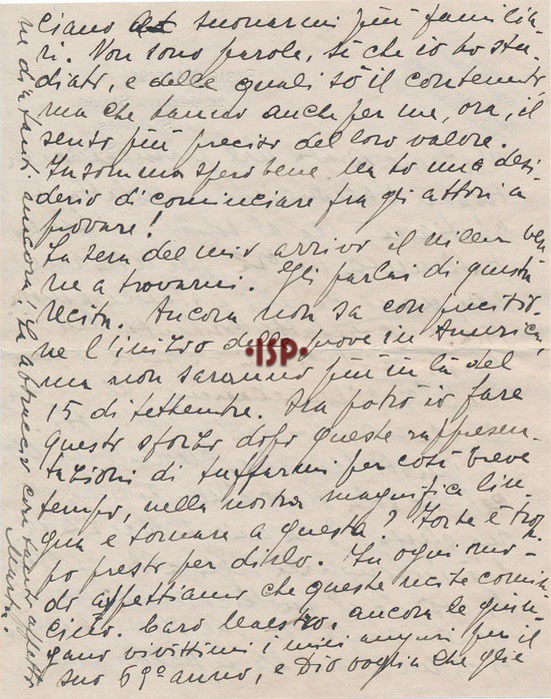 ciano a suonarmi più familia-
ri. Non sono parole, sì che io ho stu-
diato, e delle quali sò il contenuto,
ma che hanno anche per me, ora, il
senso più preciso del loro valore.
Insomma spero bene. Ma ho una desi-
derio di cominciare fra gli attori a
provare!
La sera del mio arrivo il Miller ven-
ne a trovarmi. Gli parlai di questa
recita. Ancora non sa con precisio-
ne l'inizio delle prove in America,
ma non saranno più in là del
15 di settembre. Ma potrò io fare
questo sforzo dopo queste rappresen-
tazioni di tuffarmi per così breve
tempo, nella nostra magnifica lin-
gua e tornare a questa? Forse è trop-
po presto per dirlo. In ogni mo-
do aspettiamo che queste recite comin-
cino. Caro Maestro, ancora le giun-
gano vivissimi i miei auguri per il
suo 69º anno, e Dio voglia che glie
ne dia tanti ancora! La abbraccio con tanto affetto
Marta.
·ISP·